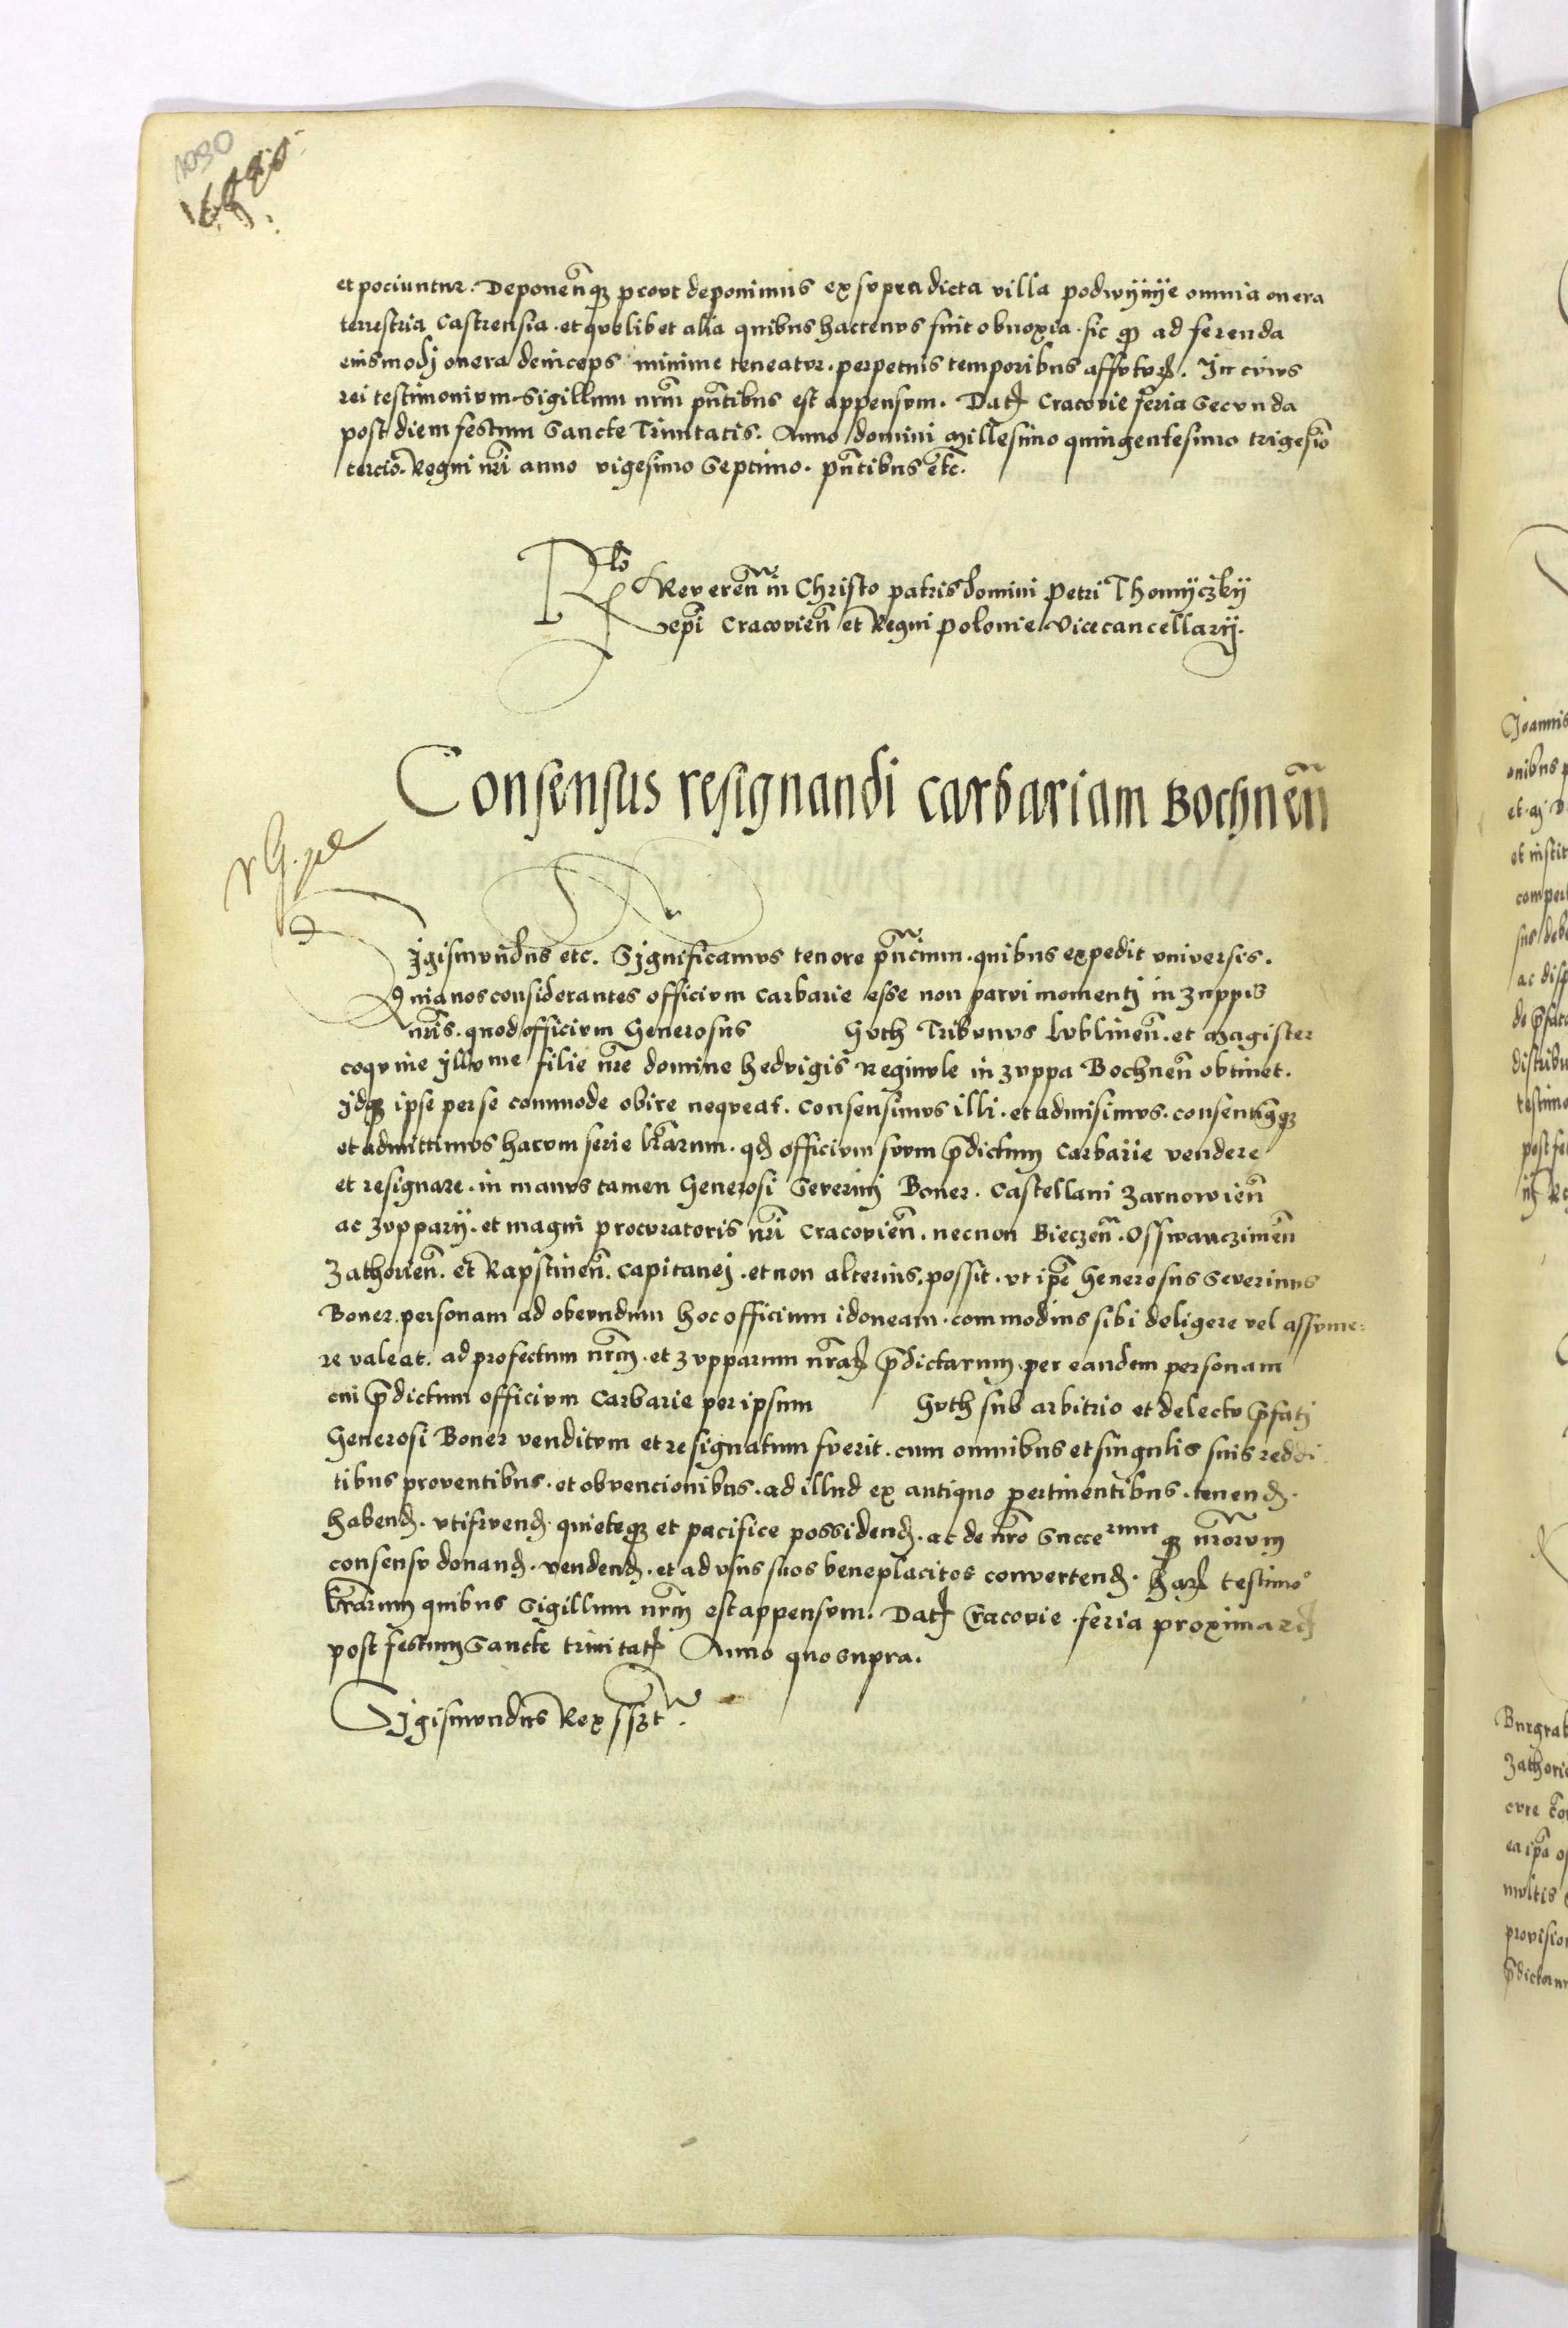 1030
et pociuntur. Deponenq̃ꝫ prout deponimus ex supradicta villa podwynye omnia onera
terrestria Castrensia. et quelibet alia quibus hactenus fuit obnoxia. sic ꝙ ad ferenda
eiusmodj onera deinceps minime teneatur. perpetuis temporibus affuturꝭ. In cuius
rei testimonium Sigillum nr̃m pñtibus est appensum. Datꝭ Cracovie feria Secunda
post diem festum Sancte Trinitatis. Anno domini Millesimo quingentesimo trigesio̅
tercio. Regni nr̃i anno vigesimo Septimo. pñtibus etc̃.
Rlõ Reveren̅ in Christo patris domini Petri Thomyczky
epĩ Cracovien̅ et Regni Polonie Vicecancellarij.
Consensus resignandi carbariam Bochnen̅
Sigismundus etc. Significamus tenore pñcium. quibus expedit universis.
Quia nos considerantes officium Carbarie esse non parvi momentj in zuppis
nr̃is. quod officium Generosus Guth Tribunus lublinen̅. et Magister
coquine Illme filie nr̃e domine hedvigis Reginule in zuppa Bochnen̅ obtinet.
Idqꝫ ipse per se commode obire nequeat. Consensimus illi. et admisimus. consentimꝰqꝫ
et admittimus harum serie lr̃arum. qđ officium suum p̃dictum Carbarie vendere
et resignare. in manus tamen Generosi Severinj Boner. Castellani Zarnowien̅
ac Zupparij. et magni procuratoris nr̃i Cracovien̅. necnon Bieczen̅. Osswanczimen̅
Zathorien̅. et Rapstinen̅. Capitanej. et non alterius. possit. ut ip̃e Generosus Severinus
Boner. personam ad obeundum hoc officium idoneam. commodius sibi deligere vel assume=
re valeat. ad profectum nr̃m. et zupparum nr̃aꝝ p̃dictarum. per eandem personam
cui p̃dictum officium Carbarie per ipsum Guth sub arbitrio et delectu p̃fatj
Generosi Boner venditum et resignatum fuerit. cum omnibus et singulis suis reddi
tibus proventibus. et obvencionibus. ad illud ex antiquo pertinentibus. tenenđ.
habenđ. utifruenđ. quieteqꝫ et pacifice possidenđ. ac de nr̃o Succerum qꝫ nr̃orum
consensu donanđ. vendenđ. et ad usus suos beneplacitos convertenđ. haꝝ testimo°
lr̃arum quibus Sigillum nr̃m est appensum. Datꝭ Cracovie. feria proxima
post festum Sancte trinitatꝭ Anno quo supra.
Sigismundus Rex sszt.